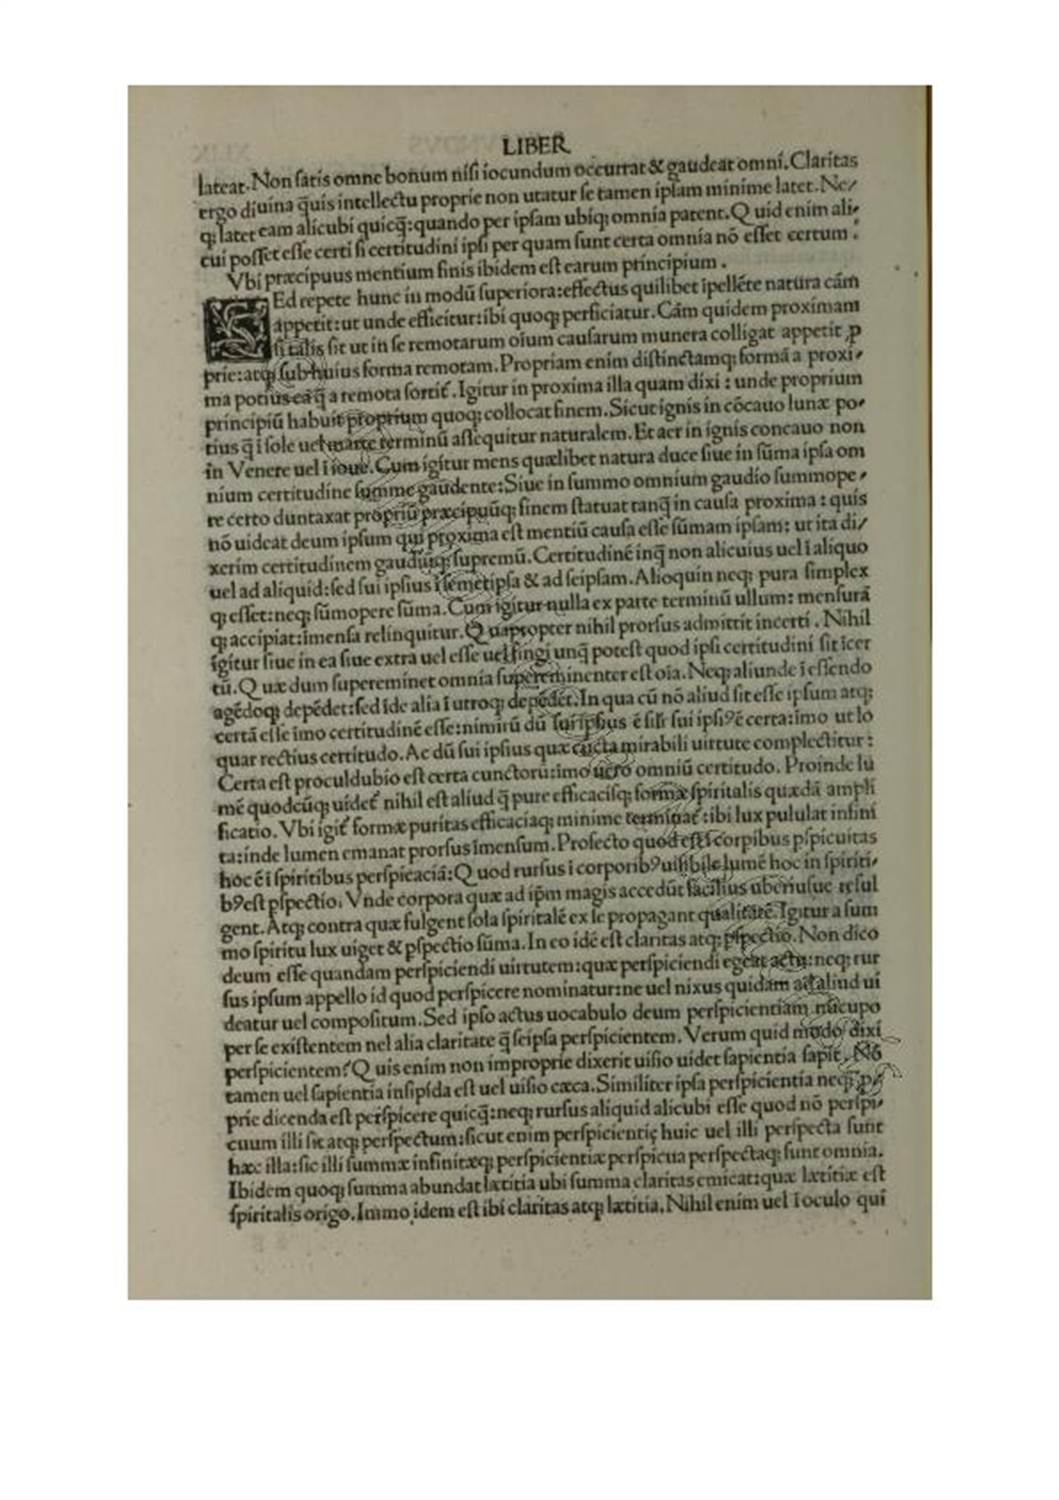 LIBER
lateat. Non ſatis omne bonum niſi iocundum occurrat & gaudeat omni. Claritas
ergo diuina q̄uis intellectu proprie non utatur ſe tamen ipſam minime latet. Ne/
qꝫ latet eam alicubi quicq̄: quando per ipſam ubiqꝫ omnia patent. Quid enim ali/
cui poſſet eſſe certi ſi certitudini ipſi per quam ſunt certa omnia nō eſſet certum.
Vbi præcipuus mentium finis ibidem eſt earum principium.
SEd repete hunc in modū ſuperiora: effectus quilibet īpellēte natura cām
appetit: ut unde efficitur: ibi quoqꝫ perficiatur. Cām quidem proximam
ſi talis ſit ut in ſe remotarum oīum cauſarum munera colligat appetit ꝓ
prie: atqꝫ ſub huius forma remotam. Propriam enim diſtinctamqꝫ formā a proxi/
ma potius eā q̄ a remota ſortit̃. Igitur in proxima illa quam dixi: unde proprium
principiū habuit proprium quoqꝫ collocat finem. Sicut ignis in cōcauo lunæ po/
tius q̄ ī ſole uel marte terminū aſſequitur naturalem. Et aer in ignis concauo non
in Venere uel ī ioue. Cum igitur mens quælibet natura duce ſiue in ſūma ipſa om
nium certitudine ſumme gaudente: Siue in ſummo omnium gaudio ſummope/
re certo duntaxat propriū præcipuūqꝫ finem ſtatuat tanq̄ in cauſa proxima: quis
nō uideat deum ipſum qui proxima eſt mentiū cauſa eſſe ſūmam ipſam: ut ita di/
xerim certitudinem gaudiūqꝫ ſupremū. Certitudinē inq̄ non alicuius uel ī aliquo
uel ad aliquid: ſed ſui ipſius ī ſemetipſa & ad ſeipſam. Alioquin neqꝫ pura ſimplex
qꝫ eſſet: neqꝫ ſūmopere ſūma. Cum igitur nulla ex parte terminū ullum: menſurā
qꝫ accipiat: īmenſa relinquitur. Quapropter nihil prorſus admittit incerti. Nihil
igitur ſiue in ea ſiue extra uel eſſe uel fingi unq̄ poteſt quod ipſi certitudini ſit īcer
tū. Quæ dum ſupereminet omnia ſupereminenter eſt oīa. Neqꝫ aliunde ī eſſendo
agēdoqꝫ depēdet: ſed īde alia ī utroqꝫ depēdēt. In qua cū nō aliud ſit eſſe ipſum atqꝫ
certā eſſe īmo certitudinē eſſe: nimirū dū ſui ipſius ē ſiſi ſui ipſiꝰ ē certa: īmo ut lo
quar rectius certitudo. Ac dū ſui ipſius quæ cūcta mirabili uirtute complectitur:
Certa eſt proculdubio eſt certa cunctorū: imo uero omniū certitudo. Proinde lu
mē quodcūqꝫ uidet̃ nihil eſt aliud q̄ pure efficaciſqꝫ formæ ſpiritalis quædā ampli
ficatio. Vbi igit̃ formæ puritas efficaciaqꝫ minime terminat̃: ibi lux pululat infini
ta: inde lumen emanat prorſus īmenſum. Profecto quod eſt ī corpibus pſpicuitas
hoc ē ī ſpiritibus perſpicaciā: Quod rurſus ī corporibꝰ uiſibile lumē hoc in ſpiriti/
bꝰ eſt pſpectio. Vnde corpora quæ ad ip̄m magis accedūt facilius uberiuſue reful
gent. Atqꝫ contra quæ fulgent ſola ſpiritalē ex ſe propagant qualitatē. Igitur a ſum
mo ſpiritu lux uiget & pſpectio ſūma. In eo idē eſt claritas atqꝫ pſpectio. Non dico
deum eſſe quandam perſpiciendi uirtutem: quæ perſpiciendi egeat actu: neqꝫ rur
ſus ipſum appello id quod perſpicere nominatur: ne uel nixus quidam ad aliud ui
deatur uel compoſitum. Sed ipſo actus uocabulo deum perſpicientiam nūcupo
per ſe exiſtentem nel alia claritate q̄ ſeipſa perſpicientem. Verum quid modo dixi
perſpicientem? Quis enim non improprie dixerit uiſio uidet ſapientia ſapit. Nō
tamen uel ſapientia inſipida eſt uel uiſio cæca. Similiter ipſa perſpicientia neqꝫ ꝓ/
prie dicenda eſt perſpicere quicq̄: neqꝫ rurſus aliquid alicubi eſſe quod nō perſpi/
cuum illi ſit atqꝫ perſpectum: ſicut enim perſpicientię huic uel illi perſpecta ſunt
hæc illa: ſic illi ſummæ infinitæqꝫ perſpicientiæ perſpicua perſpectaqꝫ ſunt omnia.
Ibidem quoqꝫ ſumma abundat lætitia ubi ſumma claritas emicat: quæ lætitiæ eſt
ſpiritalis origo. Immo idem eſt ibi claritas atqꝫ lætitia. Nihil enim uel ī oculo qui